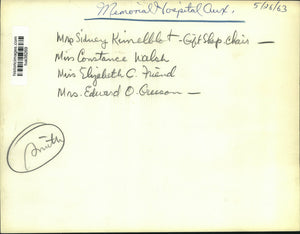 Memorial Hospital Aux. 5/26/63
Mrs Sidney Kimelblot - Gift Shop Chair —
Miss Constance Walsh
Miss Elizabeth C. Friend
Mrs. Edward O. —
Smith